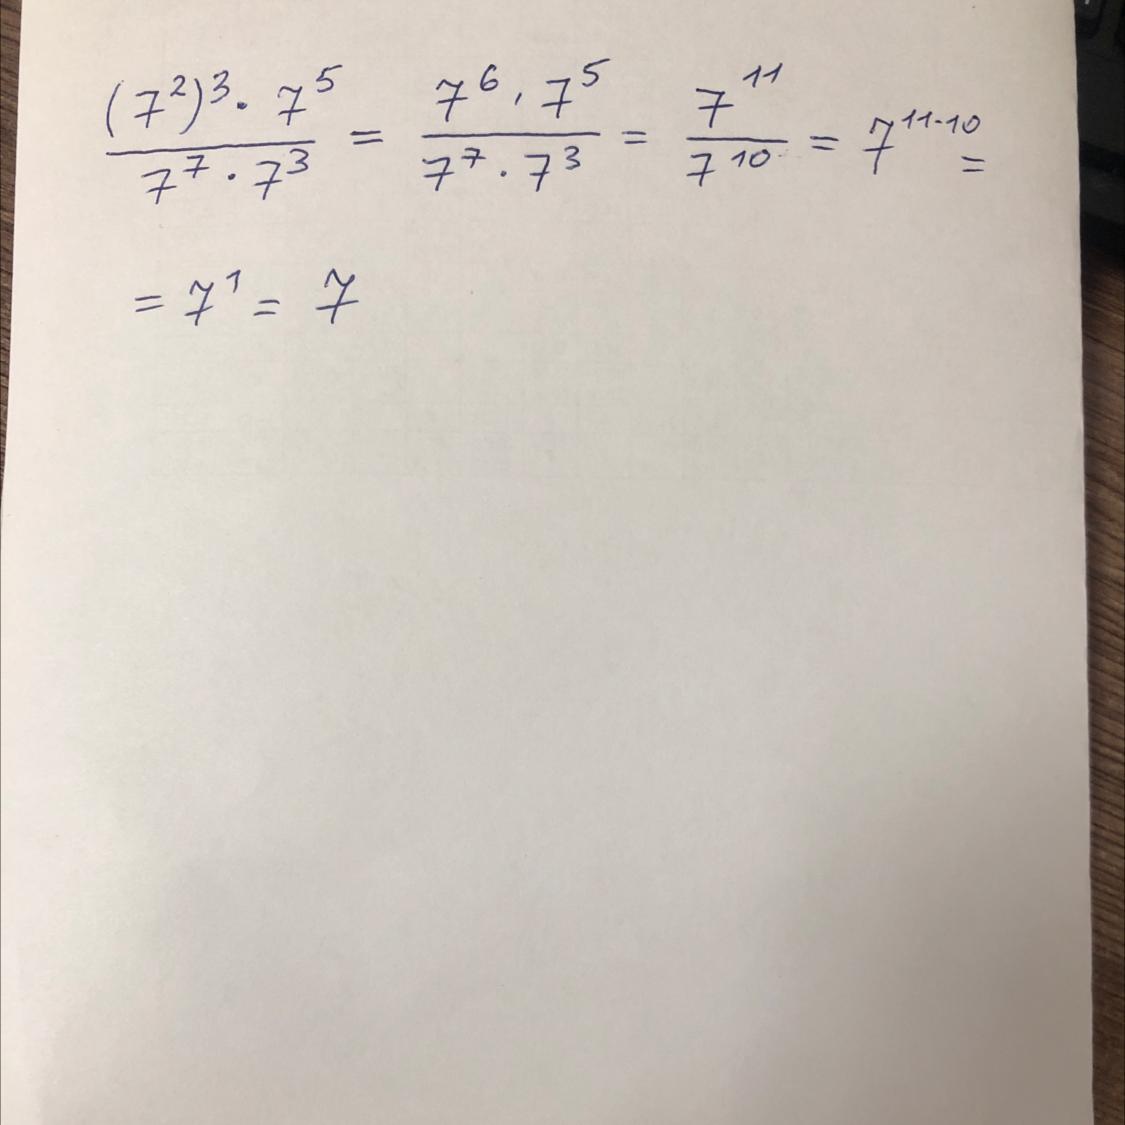 (7²)³ · 7⁵ / 7⁷ · 7³ = 7⁶ · 7⁵ / 7⁷ · 7³ = 7¹¹ / 7¹⁰ = 7¹¹⁻¹⁰ =
= 7¹ = 7